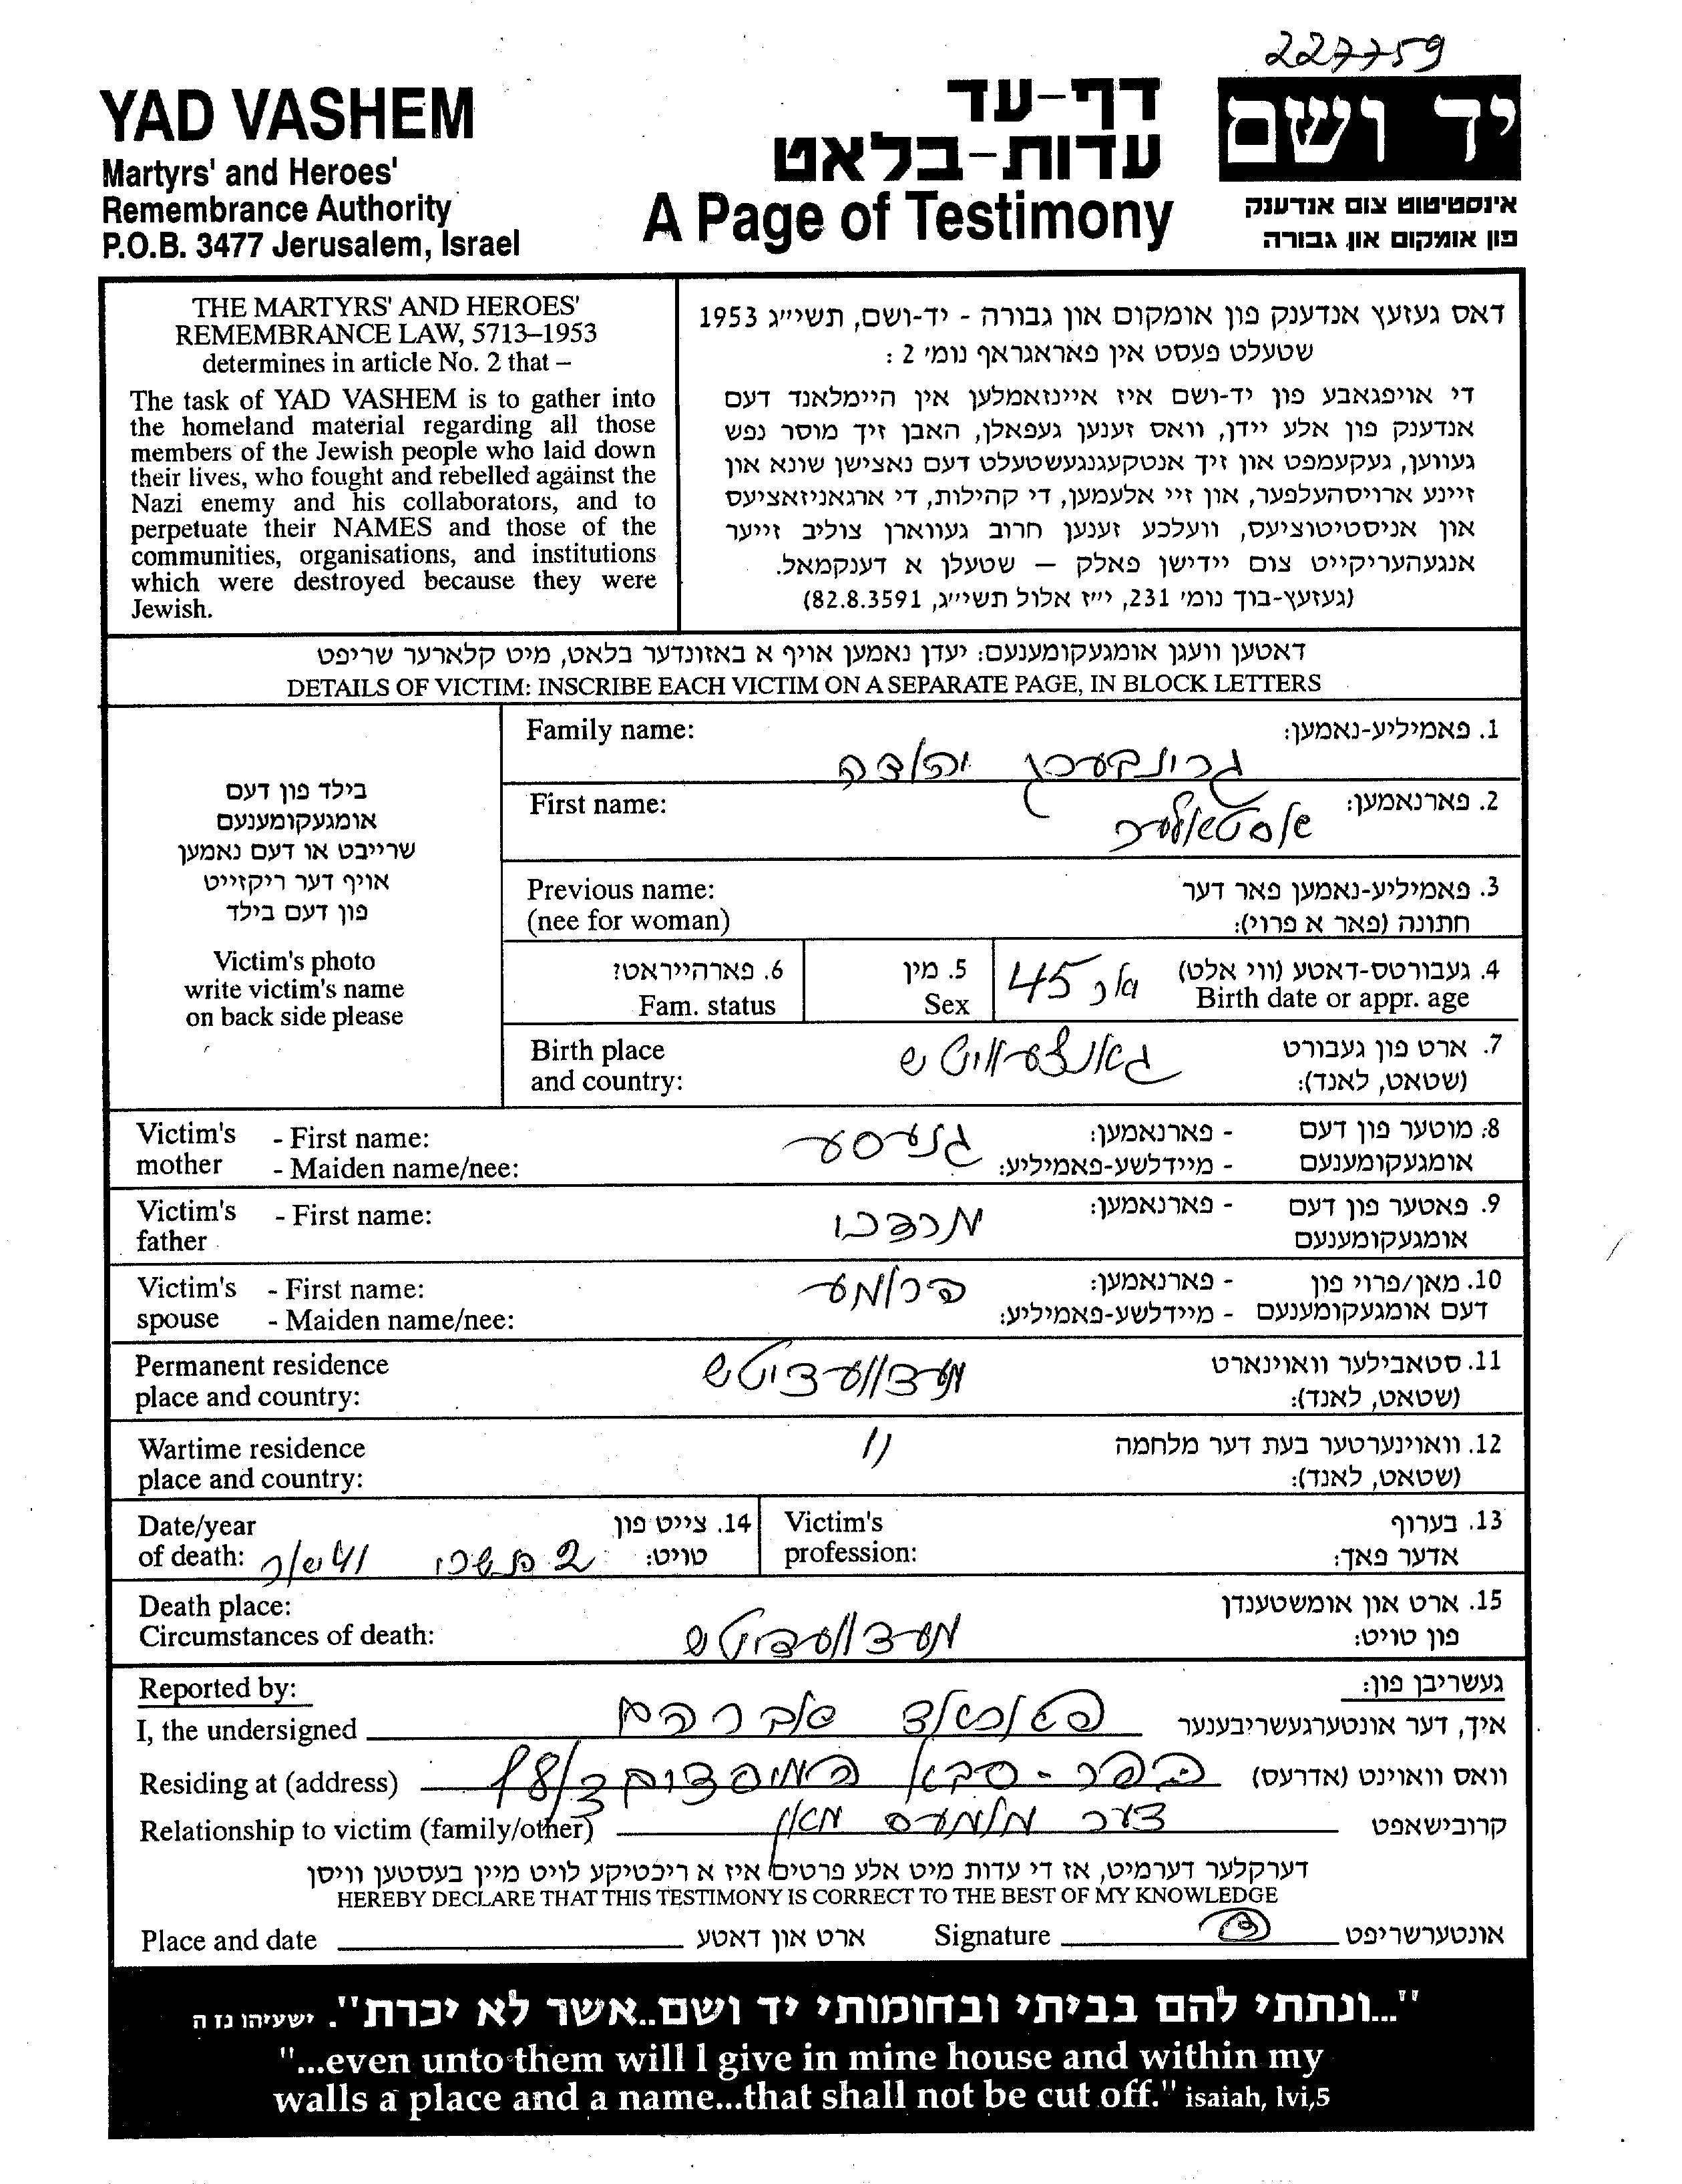 227759
YAD VASHEM
Martyrs' and Heroes'
Remembrance Authority
P.O.B. 3477 Jerusalem, Israel
דף-עד
עדות-בלאט
A Page of Testimony
יד ושם
אינסטיטוט צום אנדענק
פון אומקום און גבורה
THE MARTYRS' AND HEROES'
REMEMBRANCE LAW, 5713–1953
determines in article No. 2 that –
The task of YAD VASHEM is to gather into
the homeland material regarding all those
members of the Jewish people who laid down
their lives, who fought and rebelled against the
Nazi enemy and his collaborators, and to
perpetuate their NAMES and those of the
communities, organisations, and institutions
which were destroyed because they were
Jewish.
דאס געזעץ אנדענק פון אומקום און גבורה - יד-ושם, תשי״ג 1953
שטעלט פעסט אין פאראגראף נומ׳ 2 :
די אויפגאבע פון יד-ושם איז איינזאמלען אין היימלאנד דעם
אנדענק פון אלע יידן, וואס זענען געפאלן, האבן זיך מוסר נפש
געווען, געקעמפט און זיך אנטקעגנגעשטעלט דעם נאצישן שונא און
זיינע ארויסהעלפער, און זיי אלעמען, די קהילות, די ארגאניזאציעס
און אניסטיטוציעס, וועלכע זענען חרוב געווארן צוליב זייער
אנגעהעריקייט צום יידישן פאלק — שטעלן א דענקמאל.
(געזעץ-בוך נומ׳ 231, י״ז אלול תשי״ג, 82.8.3591)
דאטען וועגן אומגעקומענעם: יעדן נאמען אויף א באזונדער בלאט, מיט קלארער שריפט
DETAILS OF VICTIM: INSCRIBE EACH VICTIM ON A SEPARATE PAGE, IN BLOCK LETTERS
בילד פון דעם
אומגעקומענעם
שרייבט או דעם נאמען
אויף דער ריקזייט
פון דעם בילד
Victim's photo
write victim's name
on back side please
Family name: גרינבערג יהודה 1. פאמיליע-נאמען:
First name: 2. פארנאמען:
Previous name: 3. פאמיליע-נאמען פאר דער
(nee for woman) חתונה (פאר א פרוי):
6. פארהייראט? 5. מין 45 4. געבורטס-דאטע (ווי אלט)
Fam. status Sex Birth date or appr. age
Birth place 7. ארט פון געבורט
and country: (שטאט, לאנד):
Victim's - First name: גנעסע - פארנאמען: 8. מוטער פון דעם
mother - Maiden name/nee: - מיידלשע-פאמיליע: אומגעקומענעם
Victim's - First name: מרדכי - פארנאמען: 9. פאטער פון דעם
father אומגעקומענעם
Victim's - First name: פרומע - פארנאמען: 10. מאן/פרוי פון
spouse - Maiden name/nee: - מיידלשע-פאמיליע: דעם אומגעקומענעם
Permanent residence מעדוועדיטש 11. סטאבילער וואוינארט
place and country: (שטאט, לאנד):
Wartime residence 〃 12. וואוינערטער בעת דער מלחמה
place and country: (שטאט, לאנד):
Date/year 14. צייט פון Victim's 13. בערוף
of death: ב תשרי טויט: profession: אדער פאך:
Death place: 15. ארט און אומשטענדן
Circumstances of death: מעדוועדיטש פון טויט:
Reported by: געשריבן פון:
I, the undersigned אברהם איך, דער אונטערגעשריבענער
Residing at (address) כפר-סבא וואס וואוינט (אדרעס)
Relationship to victim (family/other) מאן קרובישאפט
דערקלער דערמיט, אז די עדות מיט אלע פרטים איז א ריכטיקע לויט מיין בעסטען וויסן
HEREBY DECLARE THAT THIS TESTIMONY IS CORRECT TO THE BEST OF MY KNOWLEDGE
Place and date ארט און דאטע Signature אונטערשריפט
"...ונתתי להם בביתי ובחומותי יד ושם..אשר לא יכרת". ישעיהו נז ה
"...even unto them will I give in mine house and within my
walls a place and a name...that shall not be cut off." isaiah, lvi,5